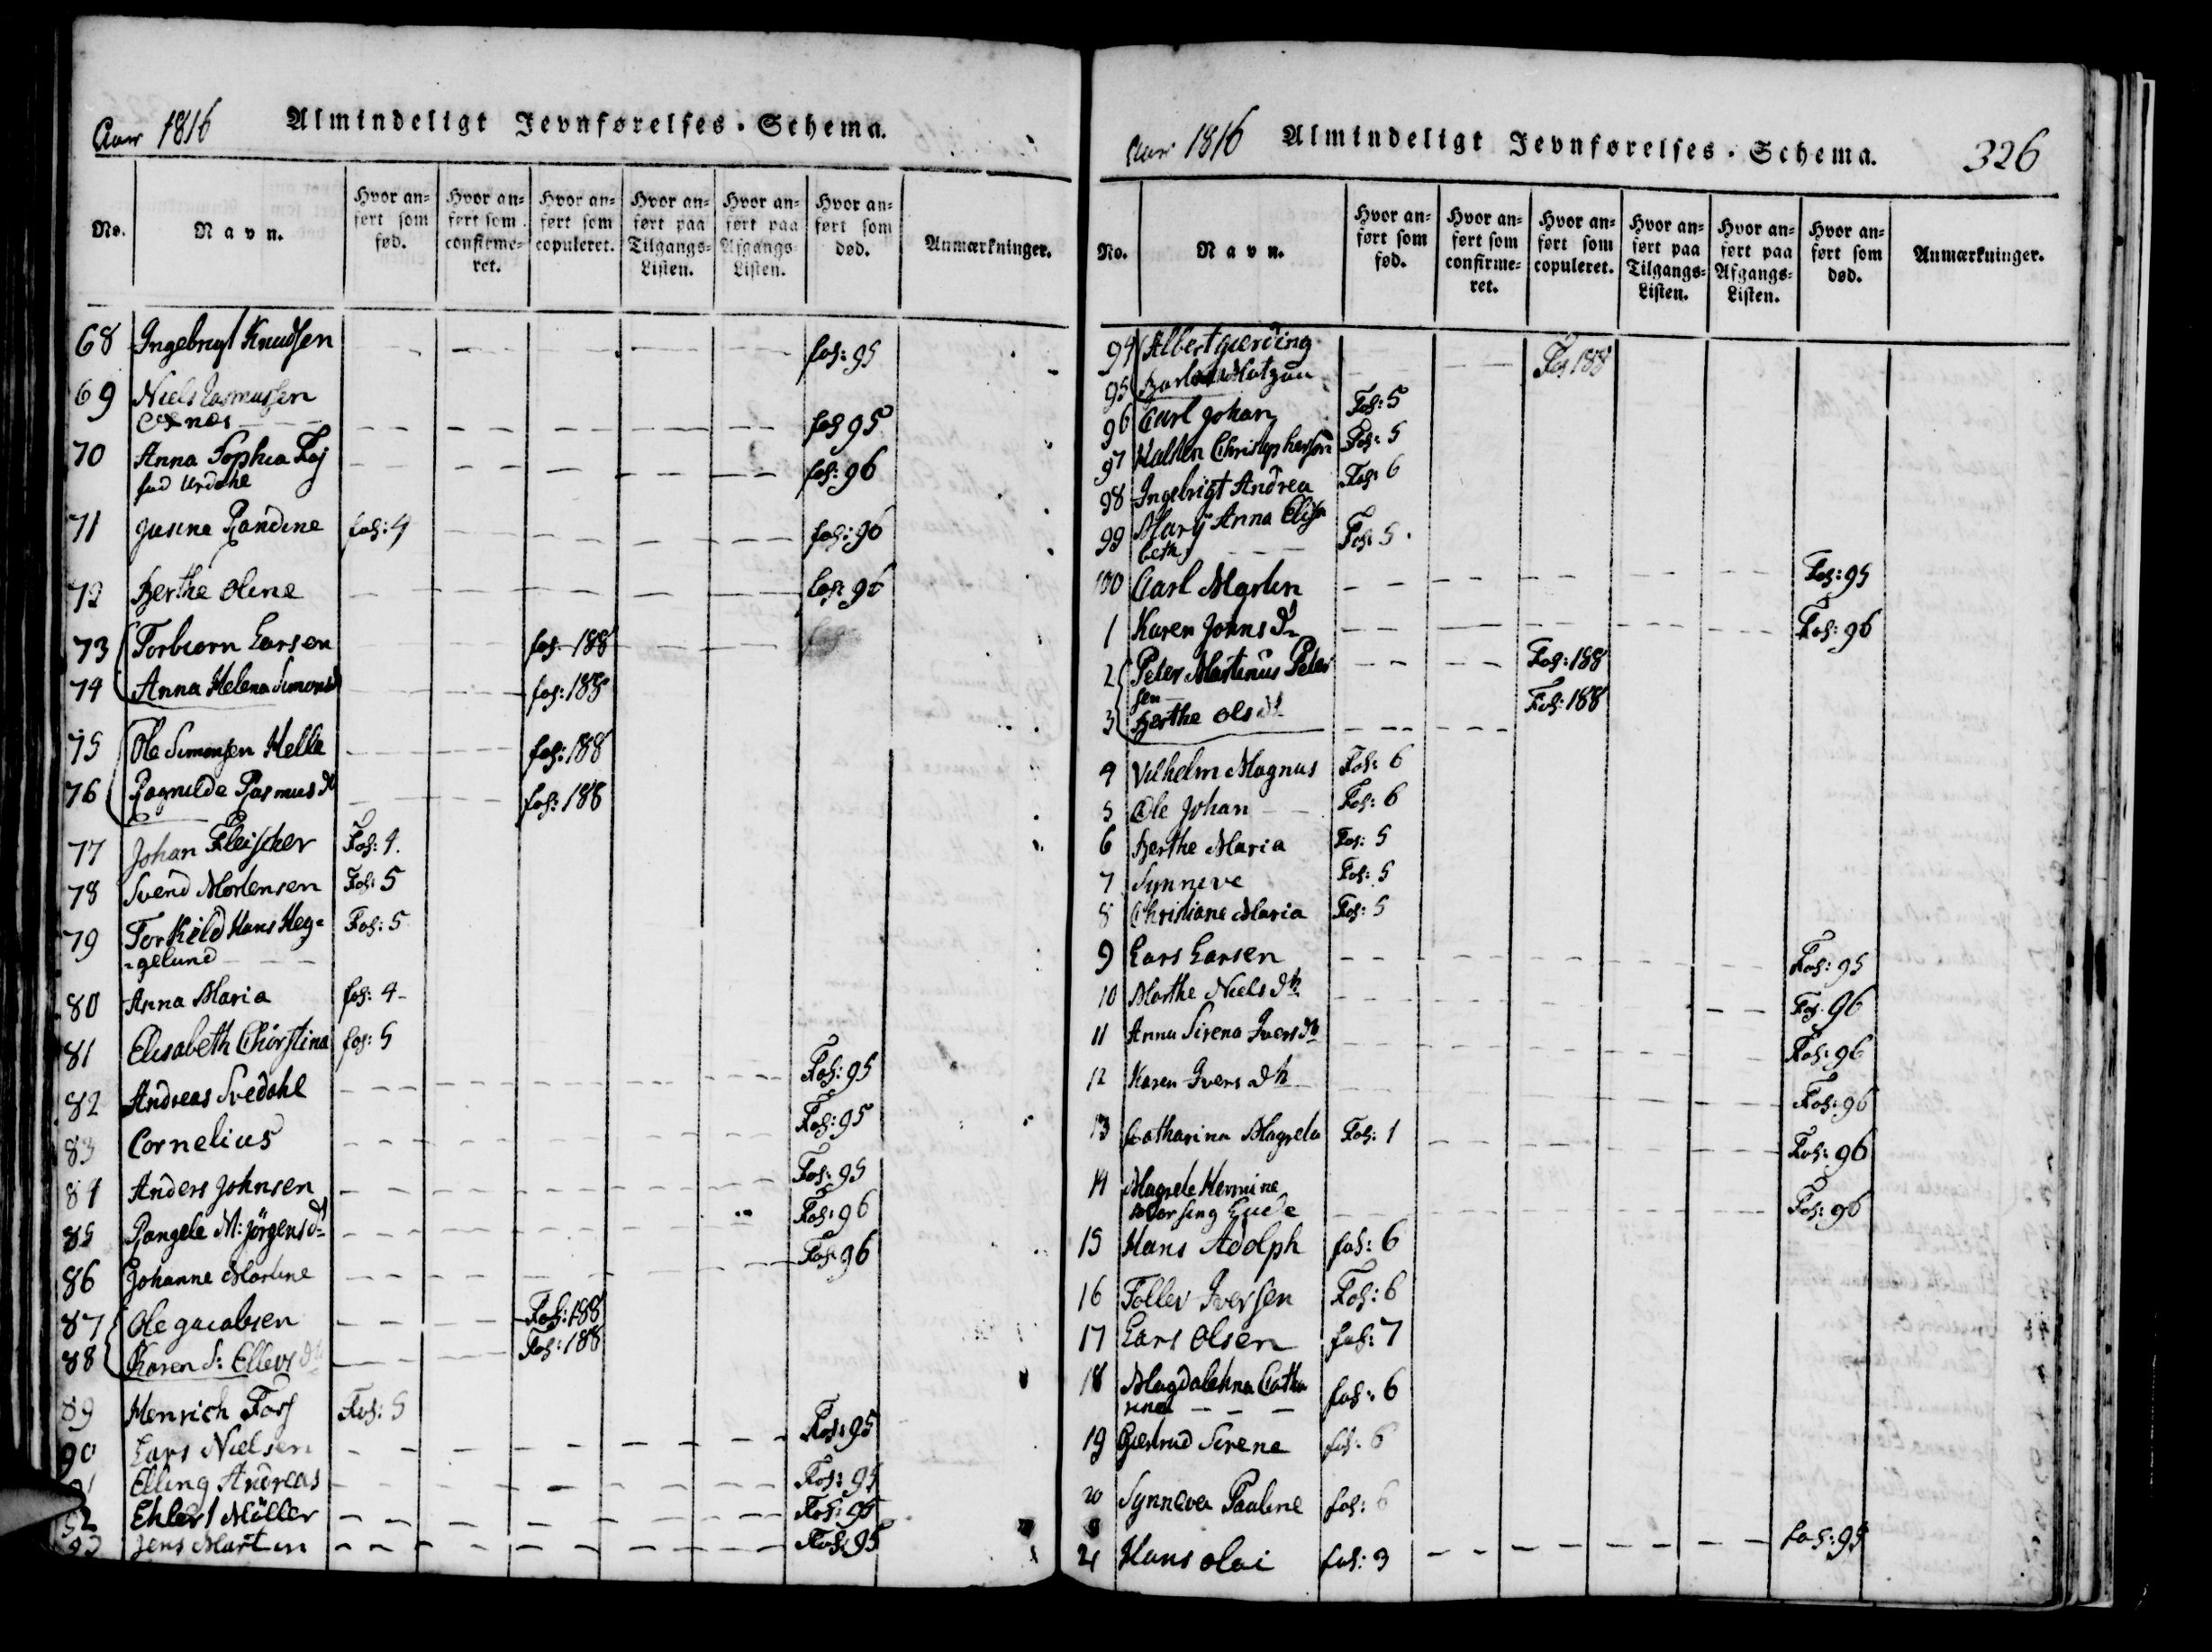 Aar 1816 Almindeligt Jevnførelses-Schema.
No. Navn. Hvor anført som fød. Hvor anført som confirmeret. Hvor anført som copuleret. Hvor anført paa Tilgangs-Listen. Hvor anført paa Afgangs-Listen. Hvor anført som død. Anmærkninger.
68 Ingebrigt Knudsen fol: 95
69 Niels Rasmussen
fol 95
70 Anna Sophia
fol: 96
71 Jasine Randine fol: 4 fol: 96
72 Berthe Oline fol: 96
73 Torbiorn Larsen fol. 188
74 Anna Helena Simonsd fol: 188
75 Ole Simonsen Helle fol: 188
76 Ragnilde Rasmusdr fol: 188
77 Johan Fleischer Fol: 4.
78 Svend Mortensen Fol: 5
79 Torkild Hans Heg=
=gelund Fol: 5
80 Anna Maria fol: 4
81 Elisabeth Chirstina fol: 5
82 Andreas Svedahl Fol: 95
83 Cornelius Fol: 95
84 Anders Johnsen Fol: 95
85 Rangele M: Jørgensdr Fol: 96
86 Johanne Martine Fol: 96
87 Ole Jacobsen Fol: 188
88 Karen S: Ellevsdr Fol: 188
89 Henrich Foss Fol: 5
90 Lars Nielsen Fol: 95
91 Elling Andreas Fol: 95
92 Ehlert Møller Fol: 95
93 Jens Martin Fol: 95
Aar 1816 Almindeligt Jevnførelses-Schema. 326
No. Navn. Hvor anført som fød. Hvor anført som confirmeret. Hvor anført som copuleret. Hvor anført paa Tilgangs-Listen. Hvor anført paa Afgangs-Listen. Hvor anført som død. Anmærkninger.
94 Albert Gierding Fol 188
95
96 Carl Johan Fol: 5
97 Halsten Christophersen Fol: 5
98 Ingebrigt Andrea Fol: 6
99 Mary Anna Elisa
beth Fol: 5
100 Carl Martin Fol: 95
1 Karen Johnsdr Fol: 96
2 Peter Martinus Peter
sen Fol: 188
3 Berthe Olsdr Fol: 188
4 Vilhelm Magnus Fol: 6
5 Ole Johan Fol: 6
6 Berthe Maria Fol: 5
7 Synneve Fol: 5
8 Christiane Maria Fol: 5
9 Lars Larsen Fol: 95
10 Marthe Nielsdr Fol. 96
11 Anna Sirena Iversdr Fol: 96
12 Karen Iversdr Fol: 96
13 Catharina Magrela Fol: 1 Fol: 96
14 Magrele Hermine
Worsing Gude Fol: 96
15 Hans Adolph fol: 6
16 Tollev Iversen Fol: 6
17 Lars Olsen fol: 7
18 Magdalehna Catha
rina fol: 6
19 Giertrud Serene fol. 6
20 Synneva Pauline fol: 6
21 Hans Olai fol: 3 fol: 95